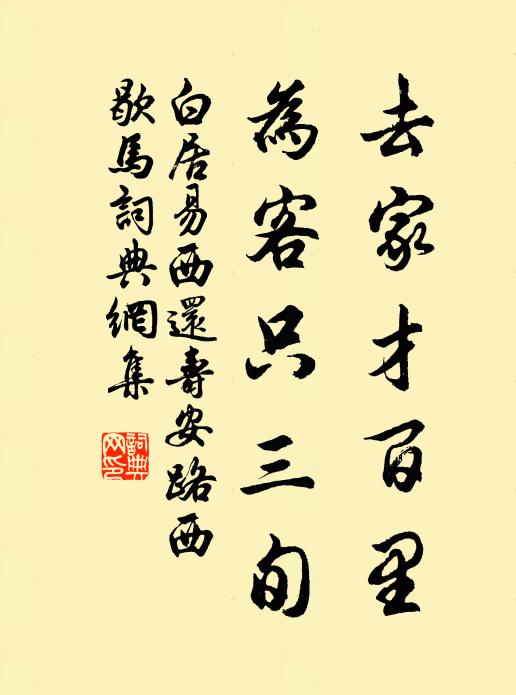 去家才百里
為客只三旬
白居易西還壽安路西
歇馬詞典網集
詞典
网印